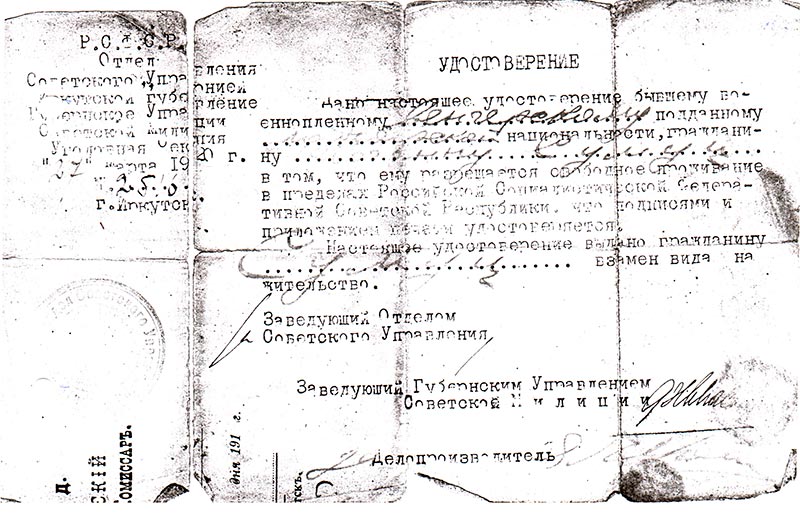 Р.С.Ф.С.Р.
Отдел
Советского Управления
Иркутской губернией
Губернское Управление
Советской Милиции
Уголовная
"27" марта 19 20 г.
г. Иркутск.
УДОСТОВЕРЕНИЕ
Дано настоящее удостоверение бывшему во-
еннопленному Венгерскому подданному
национальности, граждани-
ну
в том, что ему разрешается свободное проживание
в пределах Российской Социалистической Федера-
тивной Советской Республики, что подписями и
приложением печати удостоверяется.
Настоящее удостоверение выдано гражданину
взамен вида на
жительство.
Заведующий Отделом
Советского Управления
Заведующий Губернским Управлением
Советской Милиции
Делопроизводитель
дня 191 г.
Д.
СКІЙ
ОМИССАРЪ.
тск.